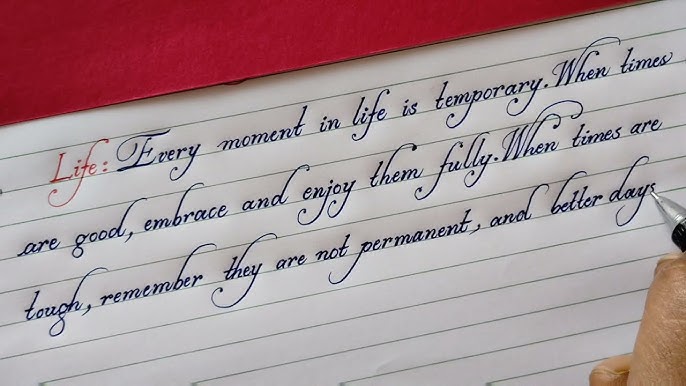 Life: Every moment in life is temporary. When times
are good, embrace and enjoy them fully. When times are
tough, remember they are not permanent, and better days